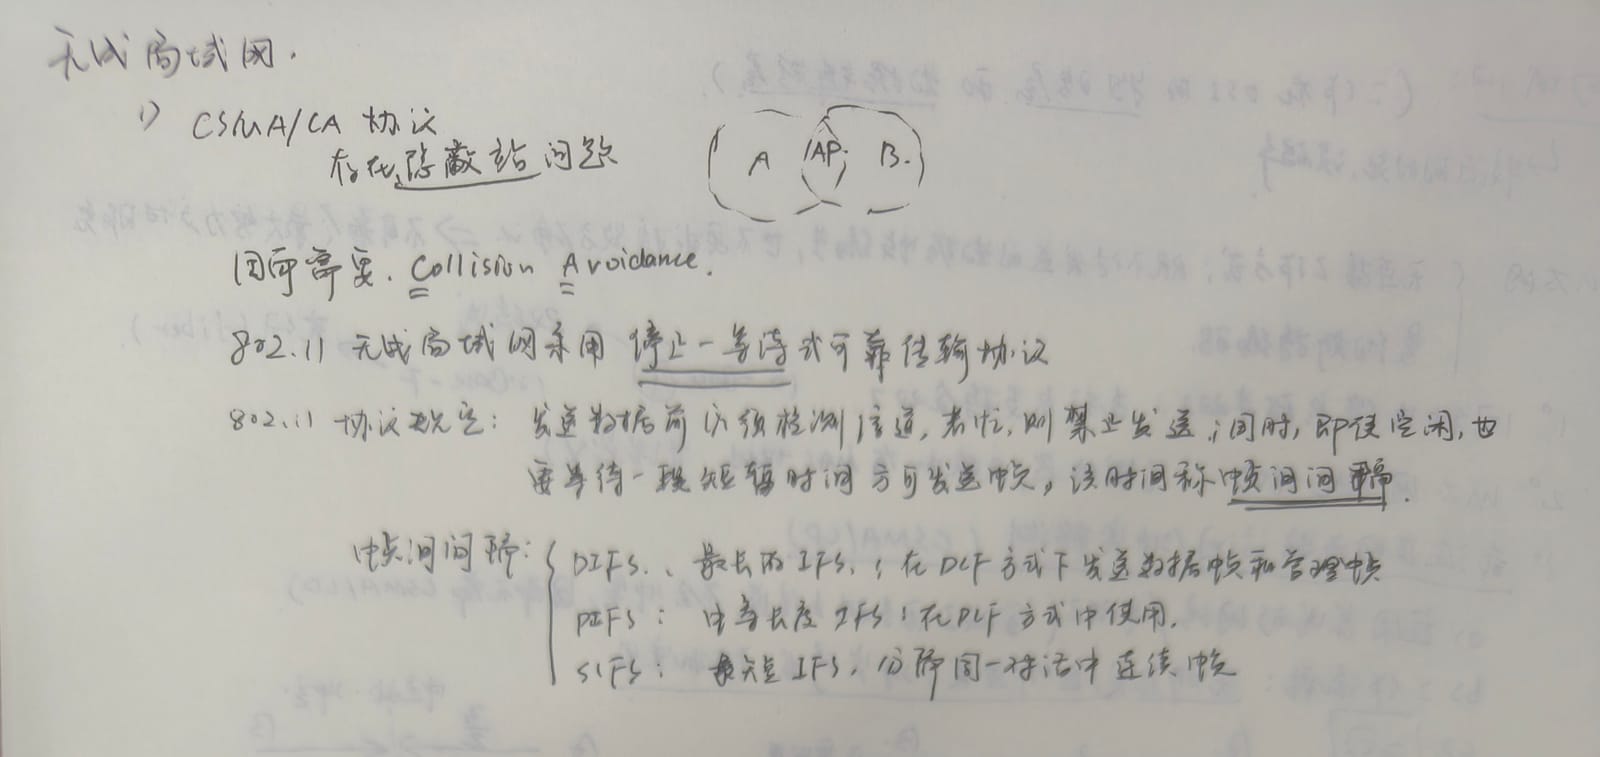 无线局域网.
1) CSMA/CA 协议
存在隐蔽站问题
A AP. B.
因而需要. Collision Avoidance.
802.11 无线局域网采用 停止-等待式可靠传输协议
802.11 协议规定: 发送数据前必须检测信道, 若忙, 则禁止发送; 同时, 即使空闲, 也
要等待一段短暂时间方可发送帧, 该时间称帧间间隔.
帧间间隔:
DIFS: 最长的IFS.; 在DCF方式下发送数据帧和管理帧
PIFS: 中等长度IFS; 在PCF方式中使用.
SIFS: 最短IFS, 分隔同一对话中连续帧